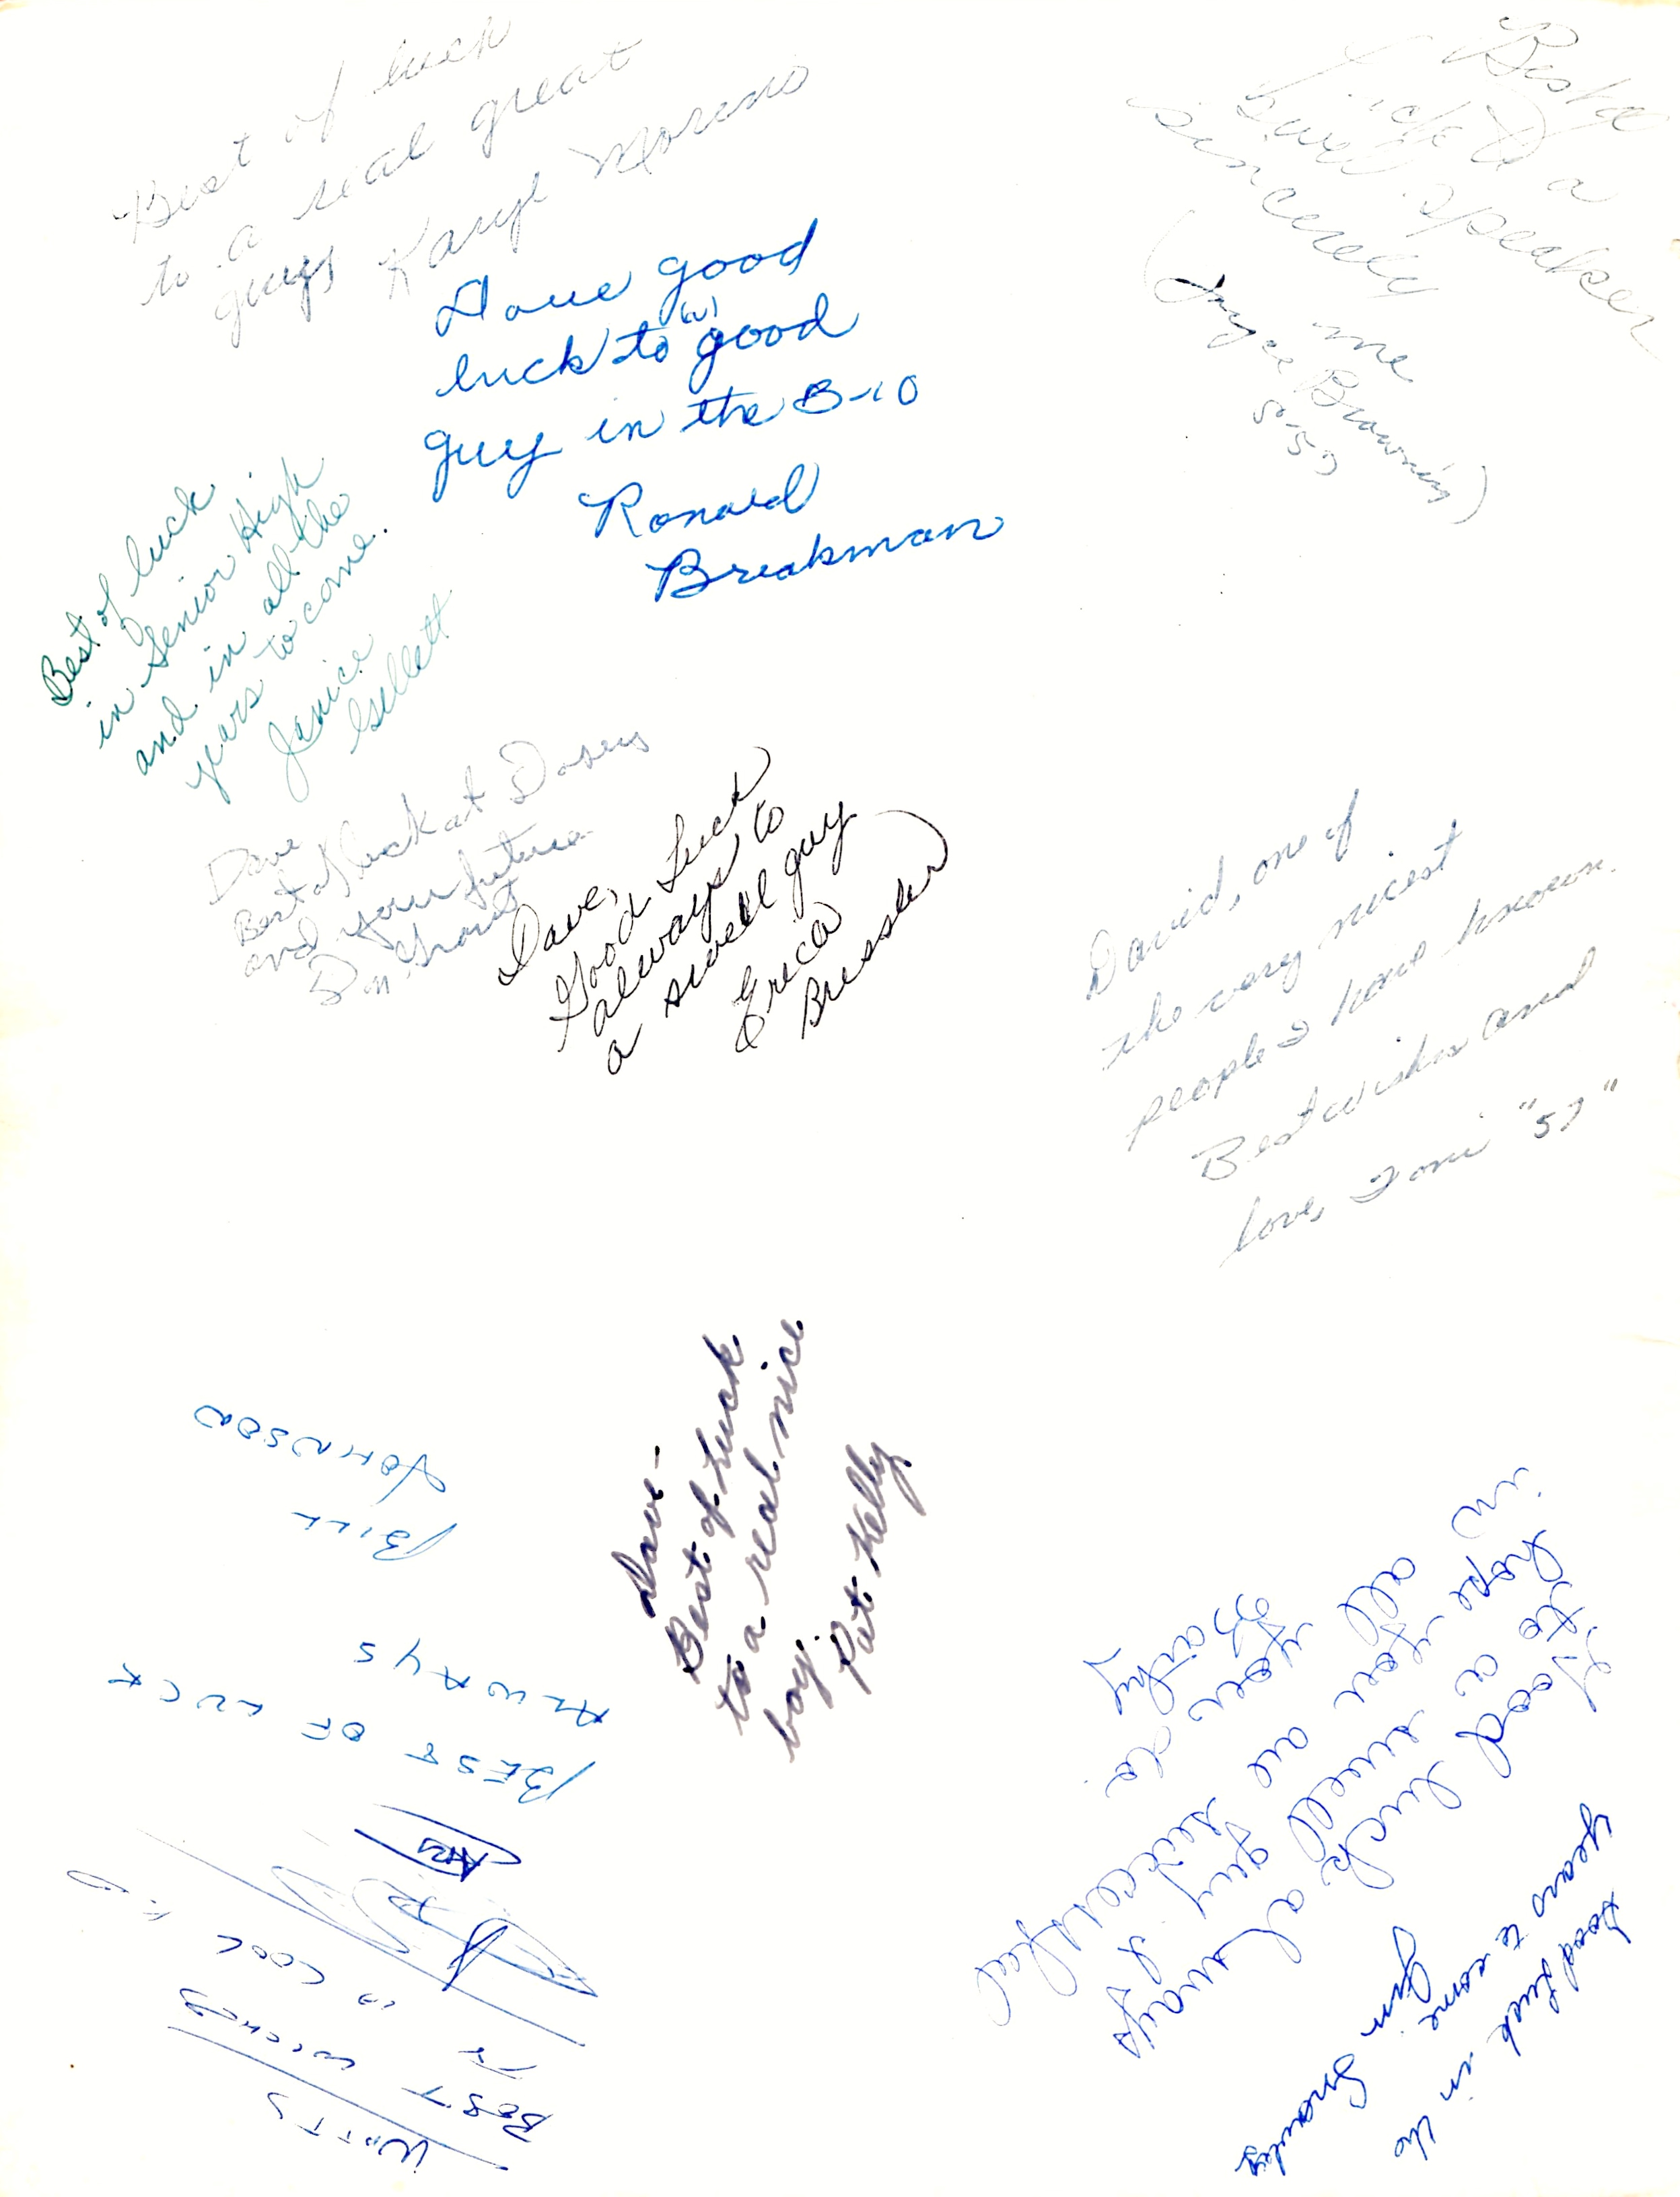 Best of luck
to a real great
guy Karyl Moreno
Best a
luck to a
swell speaker
sincerely
me
(Joyce Browning)
S'57
Dave good
luck to (a) good
guy in the B-10
Ronald
Breakman
Best of luck
in Senior High
and in all the
years to come.
Janice
Gillett
Dave
Best of luck at Dorsey
and your future
Don
Dave,
Good Luck
always to
a swell guy
Erica
Bressler
David, one of
the very nicest
people I have known.
Best wishes and
love, Toni "57"
Dave-
Best of Luck
to a real nice
boy.
Pat Kelly
BEST OF LUCK
ALWAYS
BILL
JOHNSON
WATTS
BEST WISHES
TO
A COOL
Good luck always
to a swell guy I
hope you are successful
in all you do
Good Luck in the
years to come
Jim